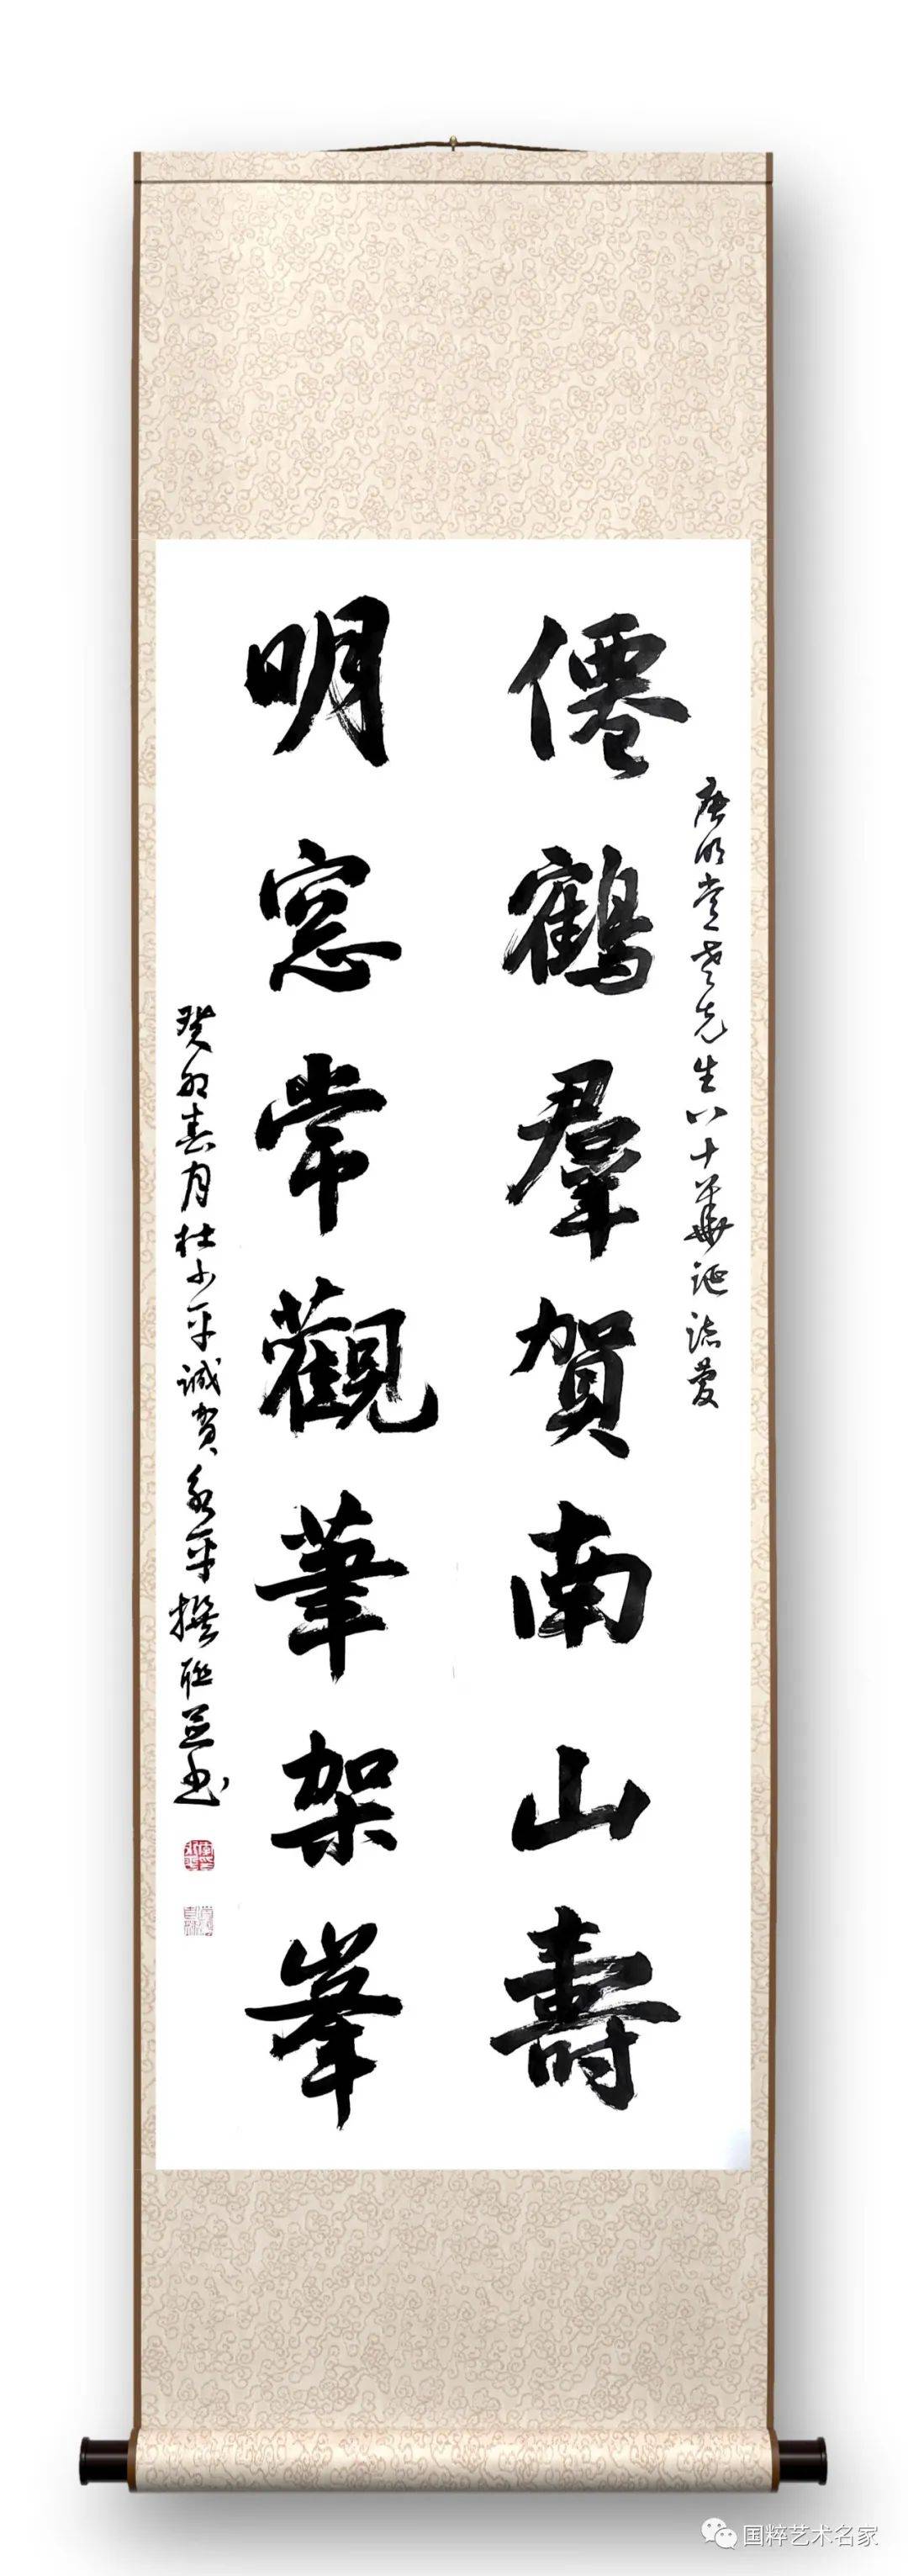 唐明堂老先生八十華誕誌慶
僊鶴羣賀南山壽
明窓常觀筆架峯
癸卯春月杜少平誠賀永平撰联並书
国粹艺术名家